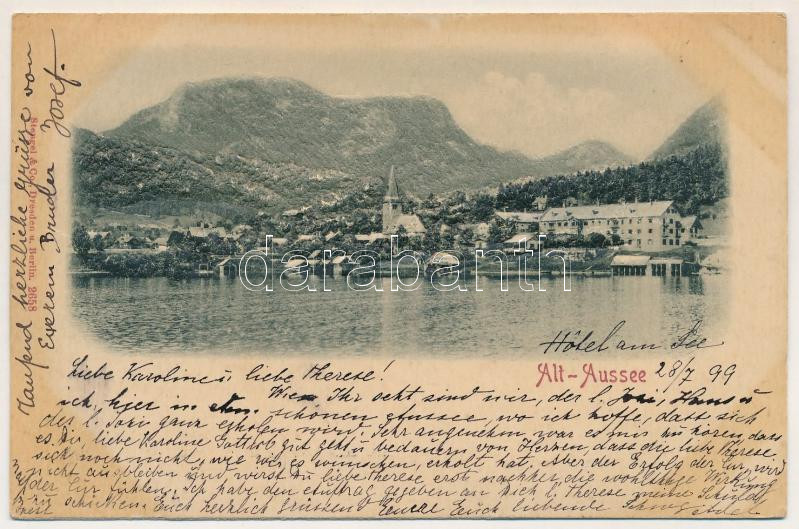 Tausend herzliche Grüsse von
Eurem Bruder Josef.
Stengel & Co., Dresden u. Berlin. 2658
darabanth.com
Hôtel am See
Alt-Aussee 28/7 99
Liebe Karoline u. liebe Therese!
Wie Ihr seht sind wir, der l. Hans u
ich, hier in schönen Aussee, wo ich hoffe, dass sich
der l. ganz erholen wird. Sehr angenehm war es mir zu hören, dass
es Dir, liebe Karoline Gottlob gut geht u bedauern von Herzen, dass die liebe Therese
sich noch nicht, wie wir es wünschen, erholt hat. Aber der Erfolg der Cur, wird
nicht ausbleiben und, wirst Du liebe Therese erst nachher die wohltuende Wirkung
der Cur fühlen. Ich habe den Auftrag gegeben an Dich l. Therese meine Schuld
zu schicken. Euch herzlich grüssend Eure Euch liebende